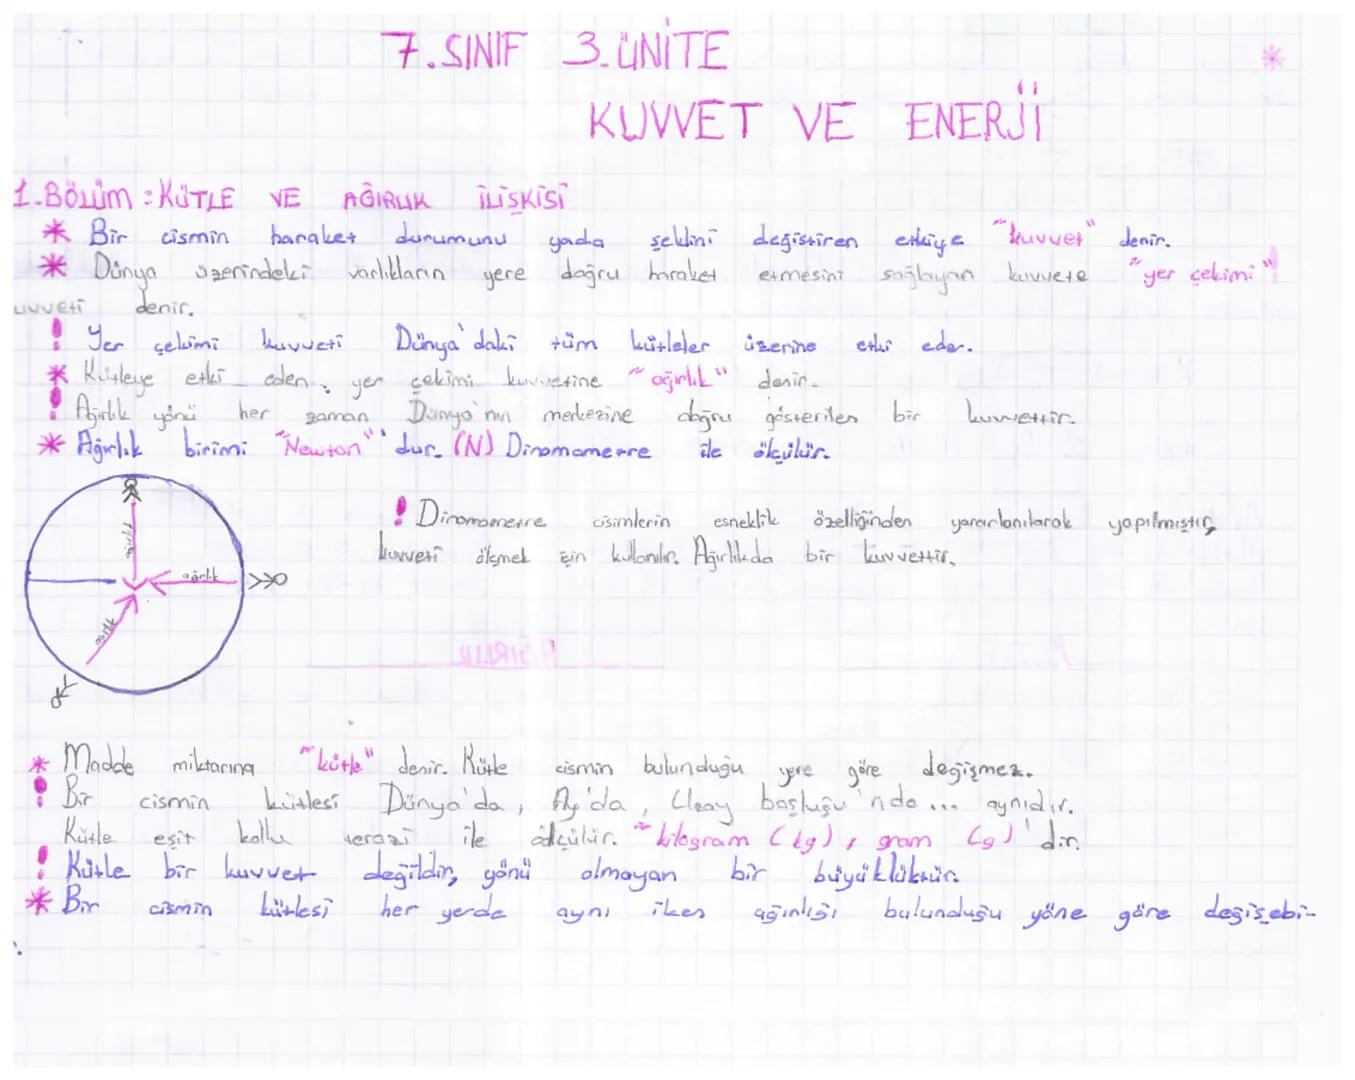 7.SINIF 3.ÜNİTE
KUVVET VE ENERJİ
1.Bölüm : KÜTLE VE AĞIRLIK İLİŞKİSİ
* Bir cismin haraket durumunu yada şeklini değiştiren etkiye "kuvvet" denir.
* Dünya üzerindeki varlıkların yere doğru haraket etmesini sağlayan kuvvete "yer çekimi"
uvveti denir.
! Yer çekimi kuvveti Dünya'daki tüm kütleler üzerine etki eder.
* Kütleye etki eden yer çekimi kuvvetine "ağırlık" denir.
! Ağırlık yönü her zaman Dünya'nın merkezine doğru gösterilen bir kuvvettir.
* Ağırlık birimi "Newton"'dur. (N) Dinamometre ile ölçülür.
ağırlık
ağırlık
ağırlık
! Dinamometre cisimlerin esneklik özelliğinden yararlanılarak yapılmıştır,
kuvveti ölçmek için kullanılır. Ağırlıkda bir kuvvettir.
* Madde miktarına "kütle" denir. Kütle cismin bulunduğu yere göre değişmez.
! Bir cismin kütlesi Dünya'da, Ay'da, Uzay boşluğu'nda ... aynıdır.
Kütle eşit kollu terazi ile ölçülür. "kilogram (kg), gram (g)'dır.
! Kütle bir kuvvet değildir, yönü olmayan bir büyüklüktür.
* Bir cismin kütlesi her yerde aynı iken ağırlığı bulunduğu yöne göre değişebi-